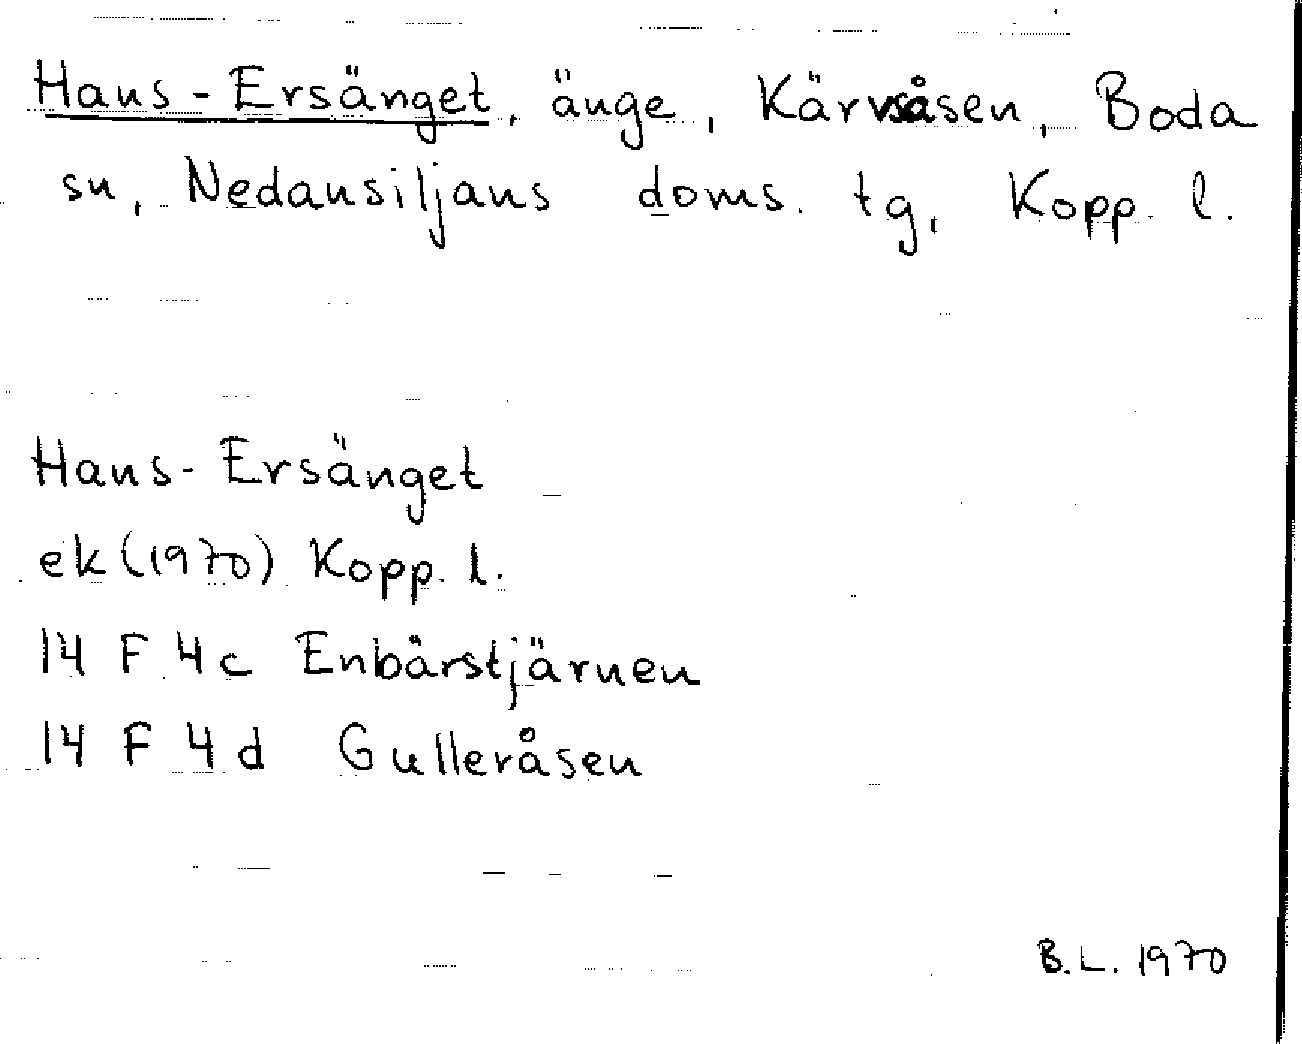 Hans-Ersänget, änge, Kärvsåsen, Boda
sn, Nedansiljans doms. tg, Kopp. l.
Hans-Ersänget
ek (1970) Kopp. l.
14 F 4c Enbärstjärnen
14 F 4d Gulleråsen
B.L. 1970